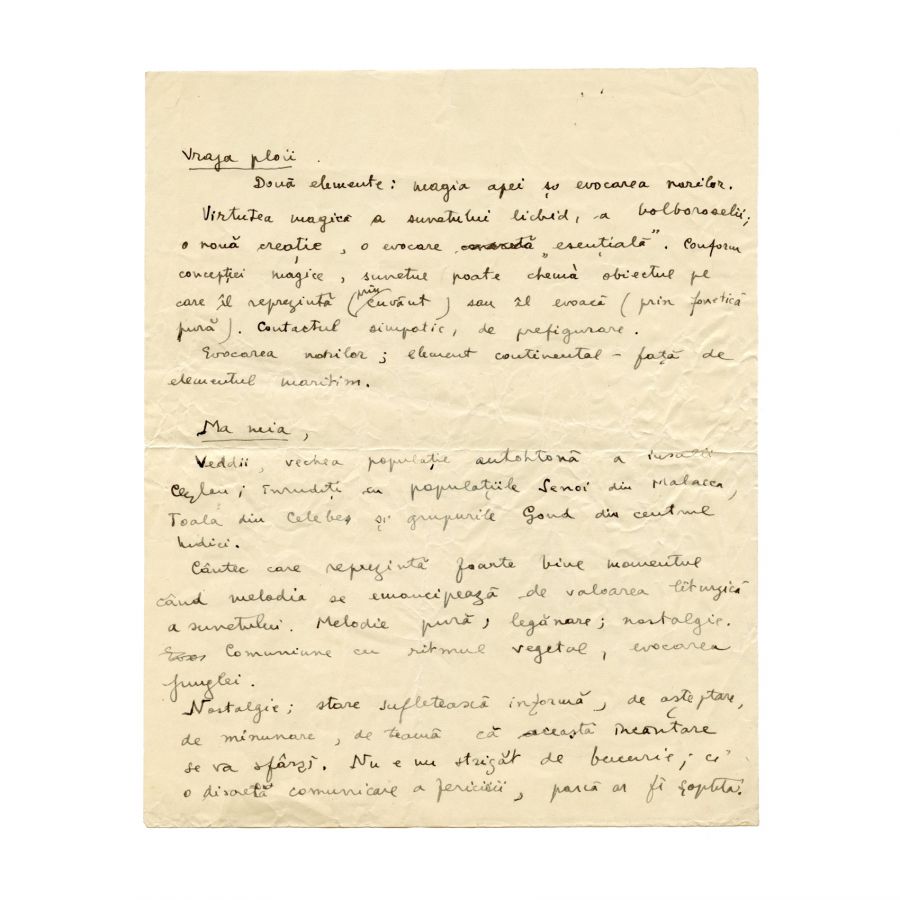 Vraja ploii.
Două elemente: magia apei și evocarea norilor.
Virtutea magică a sunetului lichid, a bolboroselii;
o nouă creație, o evocare "esențială". Conform
concepției magice, sunetul poate chemà obiectul pe
care îl reprezintă (prin cuvânt) sau îl evoacă (prin fonetică
pură). Contactul simpatic, de prefigurare.
Evocarea norilor; element continental - față de
elementul maritim.
Ma mia,
Veddii, vechea populație autohtonă a insulei
Ceylon; înrudiți cu populațiile Senoi din Malacca,
Toala din Celebes și grupurile Gond din centrul
Indiei.
Cântec care reprezintă foarte bine momentul
când melodia se emancipează de valoarea liturgică
a sunetului. Melodie pură; legănare; nostalgie.
Comuniune cu ritmul vegetal, evocarea
junglei.
Nostalgie; stare sufletească informă, de așteptare,
de minunare, de teamă că această incantare
se va sfârși. Nu e un strigăt de bucurie; ci
o discretă comunicare a fericirii, parcă ar fi șoptită.